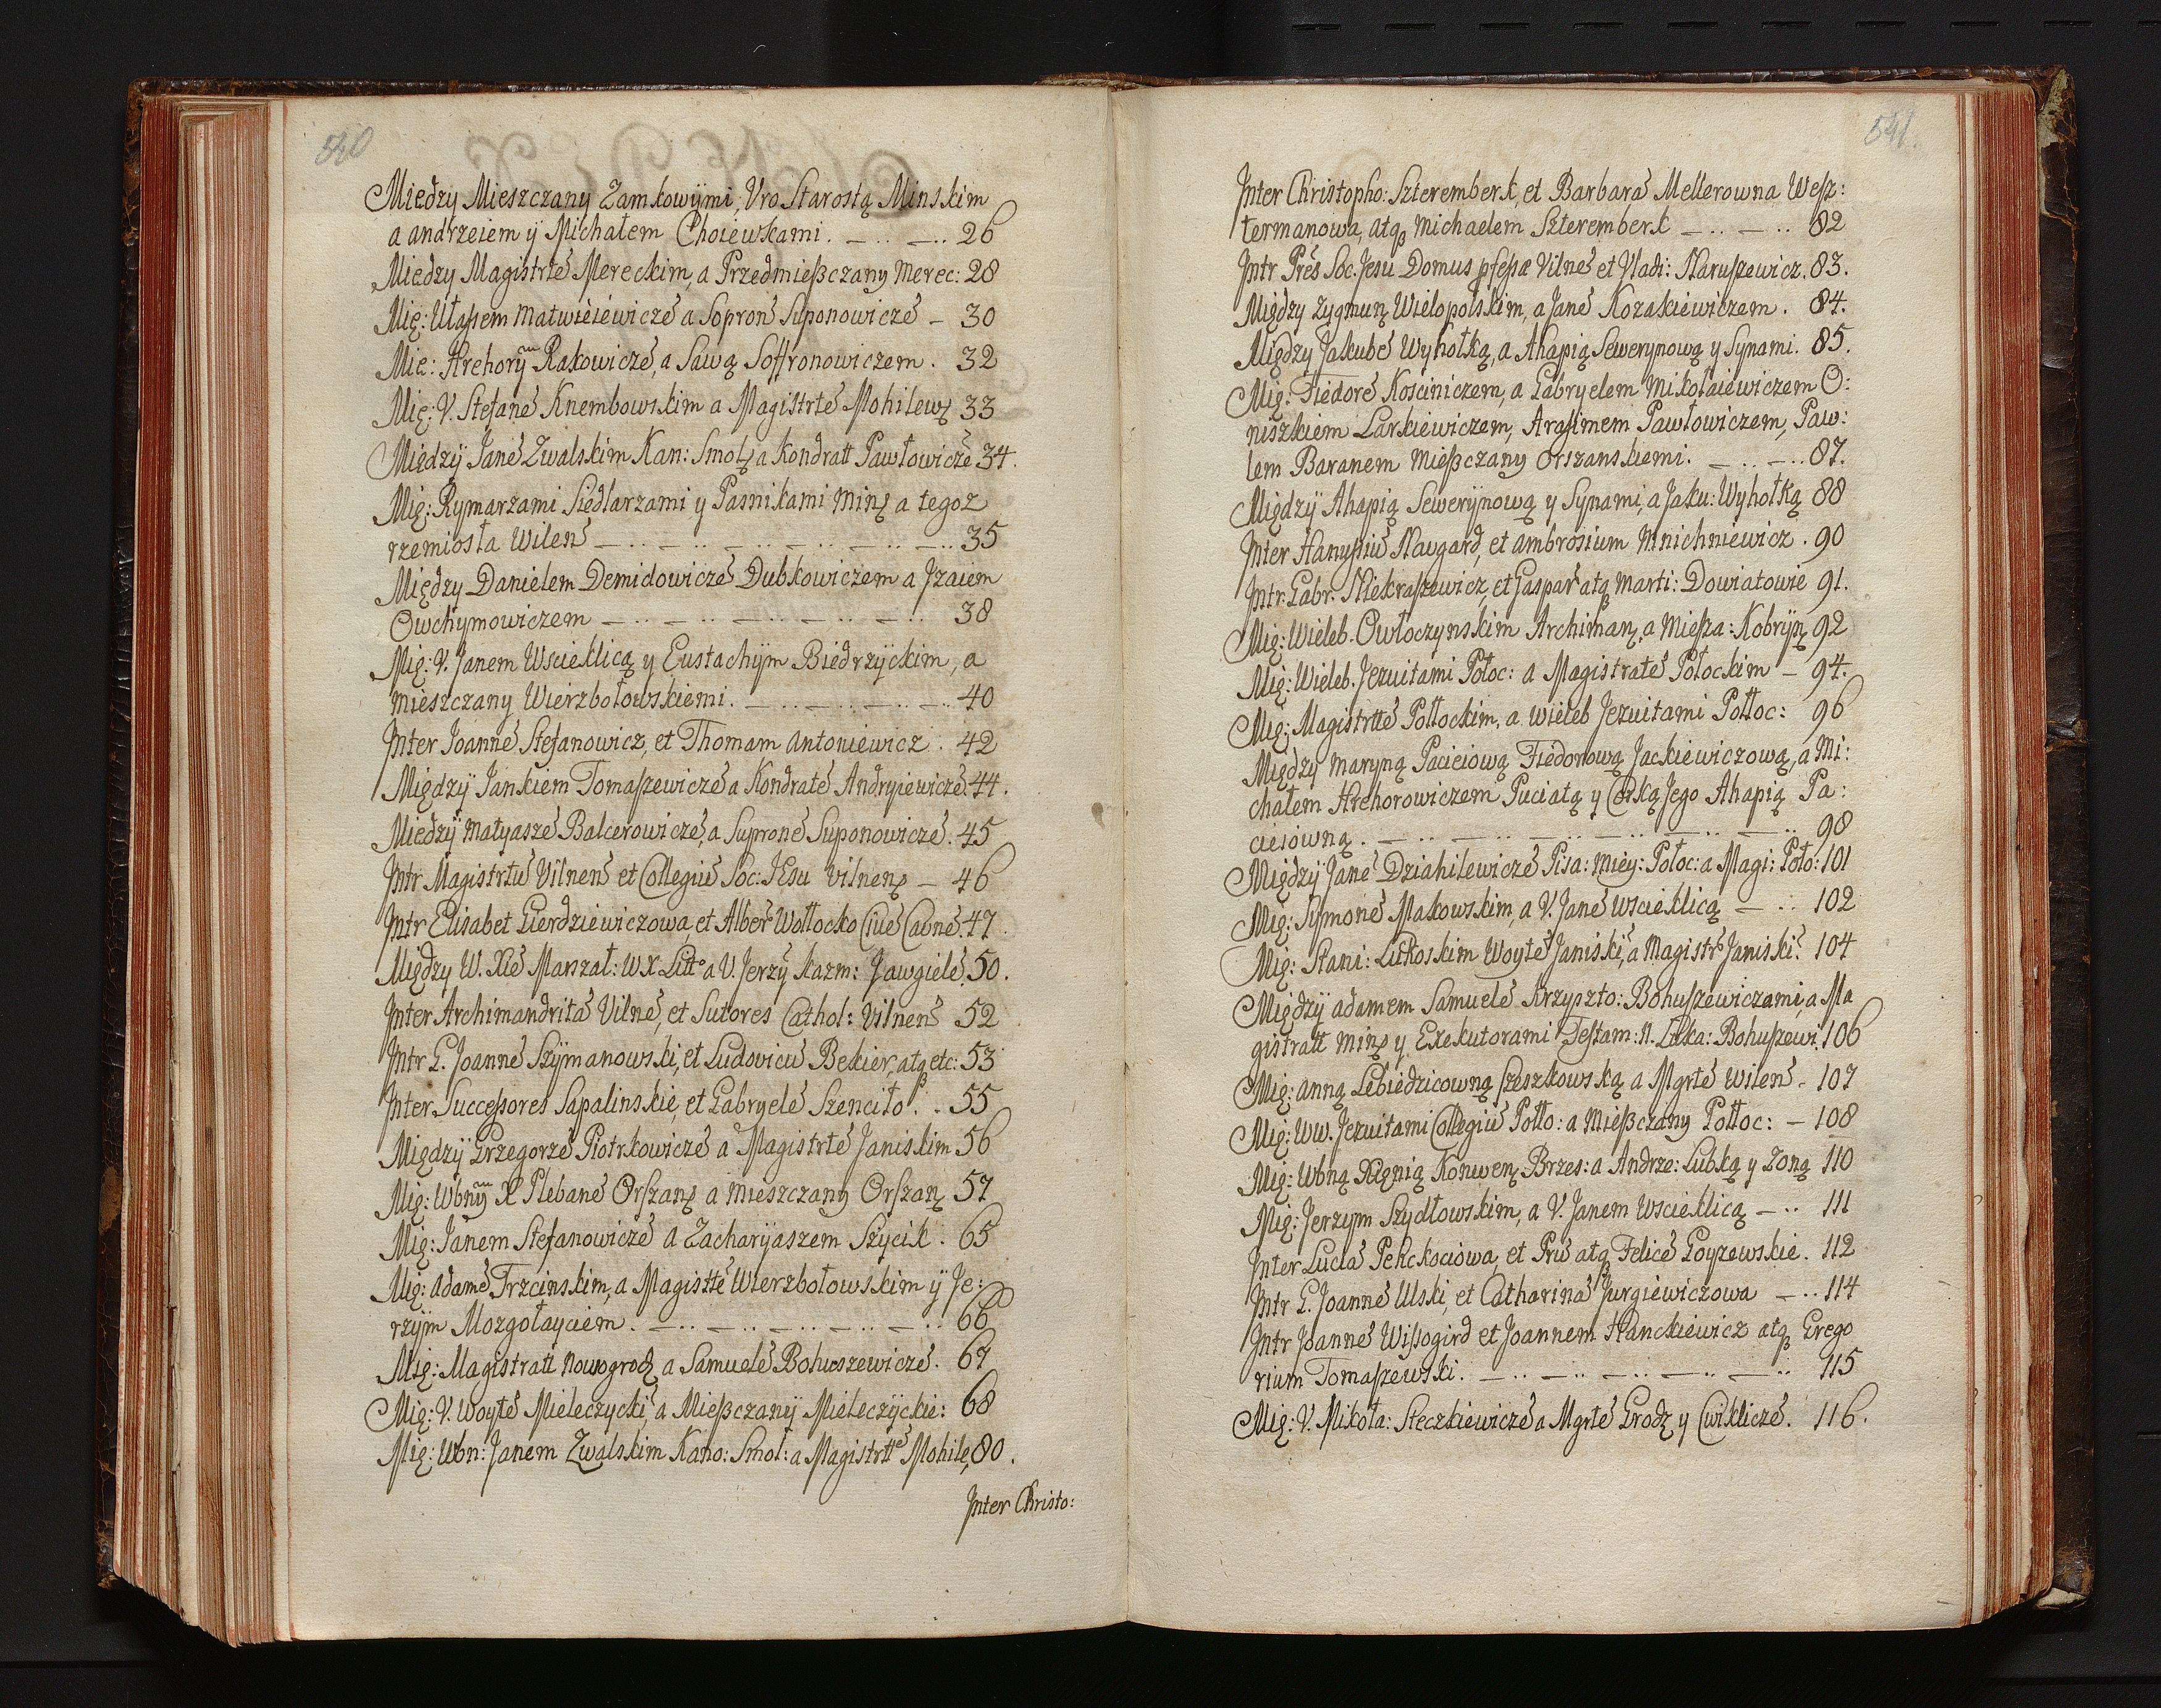 540
Miedzy Mieszczany Zamkowÿmi, Vro Starostą Minskim
a andrzeiem ÿ Michałem Choiewskami. — .. — .. 26
Miedzy Magistrtē Mereckim, a Przedmießczany Merec: 28
Mię: Ułaßem Matwieiewiczē a Sopronē Suponowiczē — 30
Mie: Hrehorÿm Rakowiczē, a Sawą Soffronowiczem. 32
Mię: V. Stefanē Knembowskim a Magistrtē Mohilewȝ 33
Międzÿ Janē Zwalskim Kan: Smolȝ a Kondratt Pawłowiczē 34.
Mię: Rymarzami Siedlarzami y Pasnikami Minȝ a tegoz
rzemiosła Wilen̄ — .. — .. — .. — .. — .. — .. 35
Między Danielem Demidowiczē Dubkowiczem a Jzaiem
Owchymowiczem — .. — .. — .. — .. — .. 38
Mię: V. Janem Wscieklicą y Eustachÿm Biedrzÿckim, a
mieszczany Wierzbołowskiemi. — .. — .. — .. — .. 40
Jnter Joannē Stefanowicz, et Thomam Antoniewicz. 42
Międzÿ Jankiem Tomaßewiczē a Kondratē Andryiewiczē. 44.
Miedzÿ Matyaszē Balcerowiczē, a Supronē Suponowiczē. 45
Jntr Magistrtū Vilnen̄ et Collegiū Soc: JEsu Vilnenȝ — 46
Jntr Elisabet Gierdziewiczowa et Alber̄ Wołłocko Ciuē Caunē. 47.
Między W. Xiē Marszał: W.X. Litto a V. Jerzÿ Kazm: Jawgielē. 50.
Jnter Archimandritā Vilnē, et Sutores Cathol: Vilnen̄ 52
Jntr G. Joannē Szÿmanowski, et Ludovicū Bekier, atqȝ etc: 53
Jnter Successores Sapalinskie, et Gabryelē Szencito. . 55
Międzÿ Grzegorzē Piotrkowiczē a Magistrtē Janiskim 56
Mię: Wbnÿm X Plebanē Orßanȝ a Mieszczany Orßanȝ 57
Mię: Janem Stefanowiczē a Zacharÿaszem Szÿcik. 65
Mię: Adamē Trzcinskim, a Magisttē Wierzbołowskim ÿ Je:
rzÿm Mozgołayciem. — .. — .. — .. — .. — .. 66
Mię: Magistratt Nowogrodȝ a Samuelē Bohuszewiczē. 67
Mię: V. Woytē Mieleczycki, a Mießczanÿ Mieleczÿckie: 68
Mię: Wbn: Janem Zwalskim Kano: Smol: a Magistrttē Mohile, 80.
Jnter Christo:
541.
Jnter Christopho: Szteremberk, et Barbarā Mellerowna Weß:
termanowa, atqȝ Michaelem Szteremberk — .. — .. 82
Jntr Prēs Soc. Jesu Domus pfeßæ Vilnē et Vladi: Narußewicz. 83.
Między Zygmunȝ Wielopolskim, a Janē Kozakiewiczem. 84.
Między Jakubē Wyhołką, a Ahapią Sewerynową y Synami. 85.
Mię: Fiedorē Kosciniczem, a Gabryelem Mikołaiewiczem O:
niszkiem Larkiewiczem, Araßimem Pawłowiczem, Paw:
lem Baranem Mießczany Orszanskiemi. — .. — .. 87.
Międzÿ Ahapią Sewerÿnową y Synami, a Jaku: Wyhołką 88
Jnter Hanußiū Naugard, et Ambrosium Mnichniewicz. 90
Jntr. Gabr. Niekraßewicz, et Gaspar̄ atqȝ Marti: Dowiatowie 91.
Mię: Wieleb. Owłoczynskim Archimanȝ, a Mießa: Kobrÿnȝ 92
Mię: Wieleb. Jezuitami Połoc: a Magistratē Połockim — 94.
Mię: Magistrttē Połłockim, a Wieleb Jezuitami Połłoc: 96
Między Maryną Pacieiową Fiedorową Jackiewiczową, a Mi:
chałem Hrehorowiczem Puciatą y Corką Jego Ahapią Pa:
cieiowną. — .. — .. — .. — .. — .. — .. 98
Międzÿ Janē Dziahilewiczē Pisa: Miey: Połoc: a Magi: Poło: 101
Mię: Symonē Makowskim, a V. Janē Wscieklicą — .. 102
Mię: Stani: Lutkoskim Woytē Janiski, a Magistr̄ Janiski: 104
Międzÿ Adamem Samuelē Krzyszto: Bohußewiczami, a Ma
gistratt Minȝ y Exekutorami Testam: N. Luka: Bohußewi. 106
Mię: Anną Lebiedzicowną Czeszkowską a Mgrtē Wilen̄ . 107
Mię: Ww. Jezuitami Collegiū Połło: a Mießczany Połłoc: — 108
Mię: Wbną Xięnią Konwenȝ Brzes: a Andrze: Lubką y Zoną 110
Mię: Jerzym Szydłowskim, a V. Janem Wscieklicą — .. 111
Jnter Luciā Pekckościowa, et Priū atqȝ Felicē Goyzewskie. 112
Jntr G. Joannē Ulski, et Catharinā Jurgiewiczowa — .. 114
Jntr Joannē Wißogird et Joannem Hanckiewicz atqȝ Grego
rium Tomaßewski. — .. — .. — .. — .. — .. 115
Mię: V. Mikoła: Steczkiewiczē a Mgrtē Grodȝ y Cwikliczē. 116.